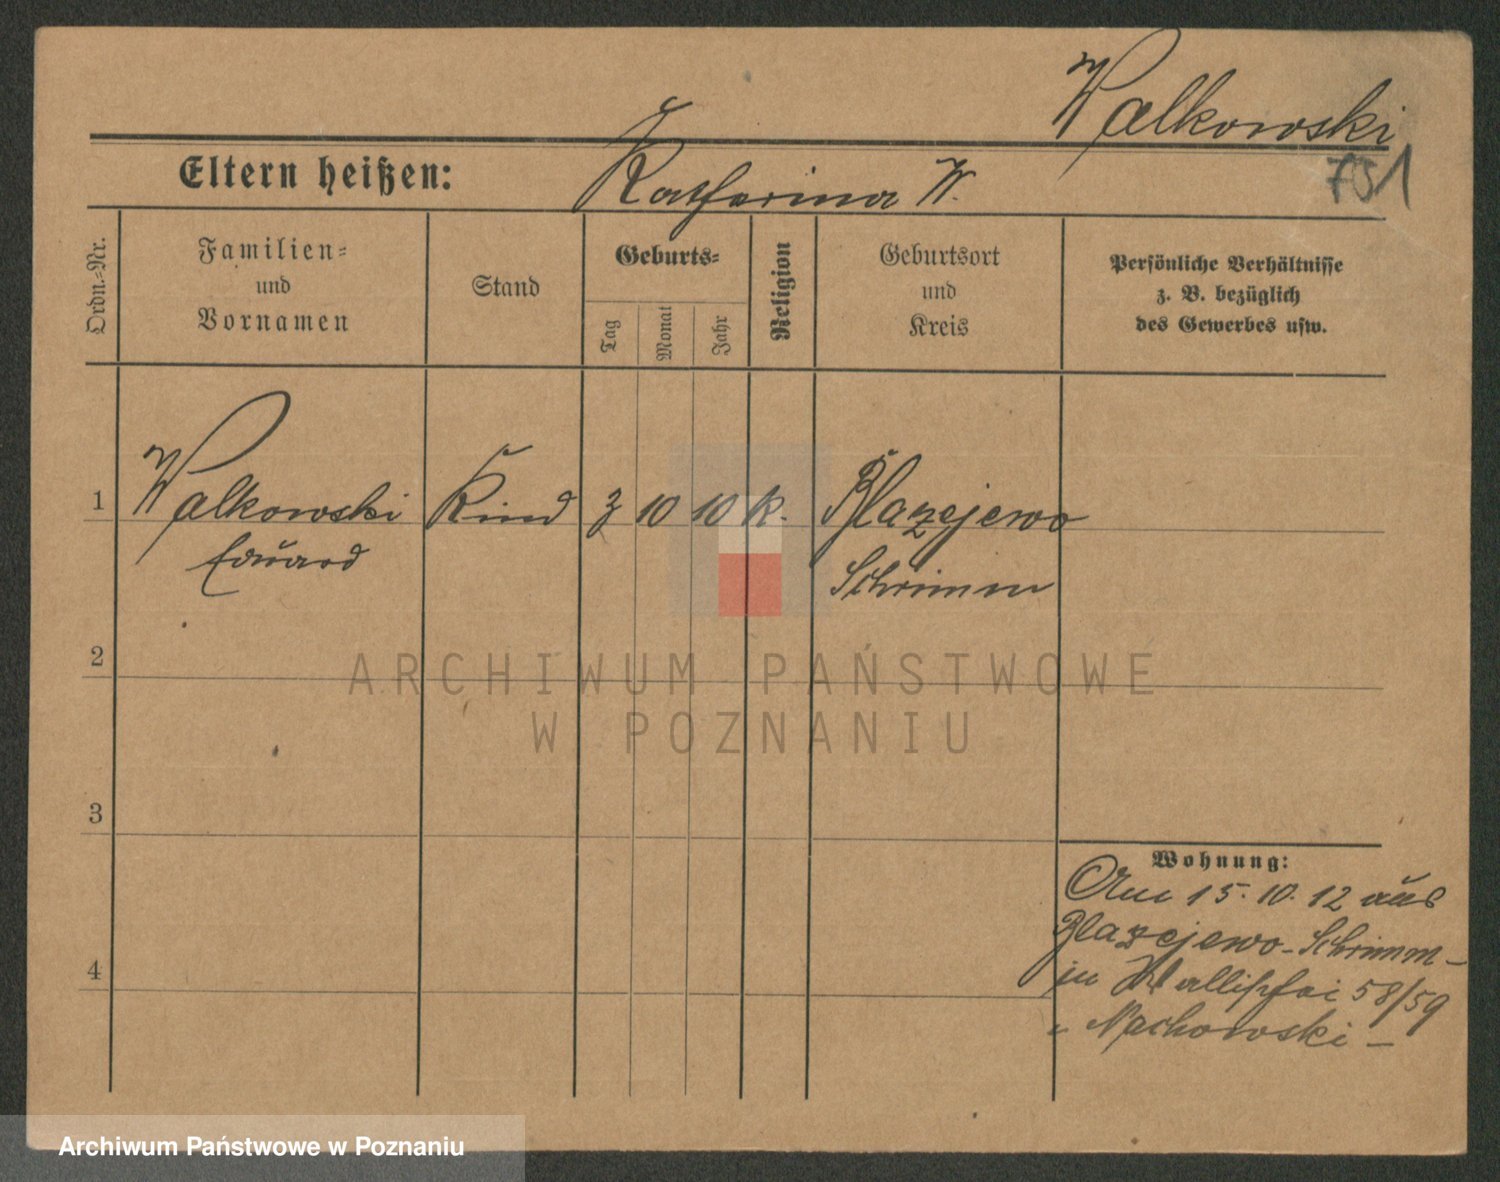 Walkowski
751
Eltern heißen: Katharina W.
Ordn.=Nr.
Familien=
und
Vornamen
Stand
Geburts=
Tag
Monat
Jahr
Religion
Geburtsort
und
Kreis
Persönliche Verhältnisse
z. B. bezüglich
des Gewerbes usw.
1 Walkowski Kind 3 10 10 k. Blazejewo
Eduard Schrimm
2
ARCHIWUM PAŃSTWOWE
W POZNANIU
3
Wohnung:
Am 15. 10. 12 aus
Blazejewo-Schrimm-
in Wallischei 58/59
4
" Machowski -
Archiwum Państwowe w Poznaniu